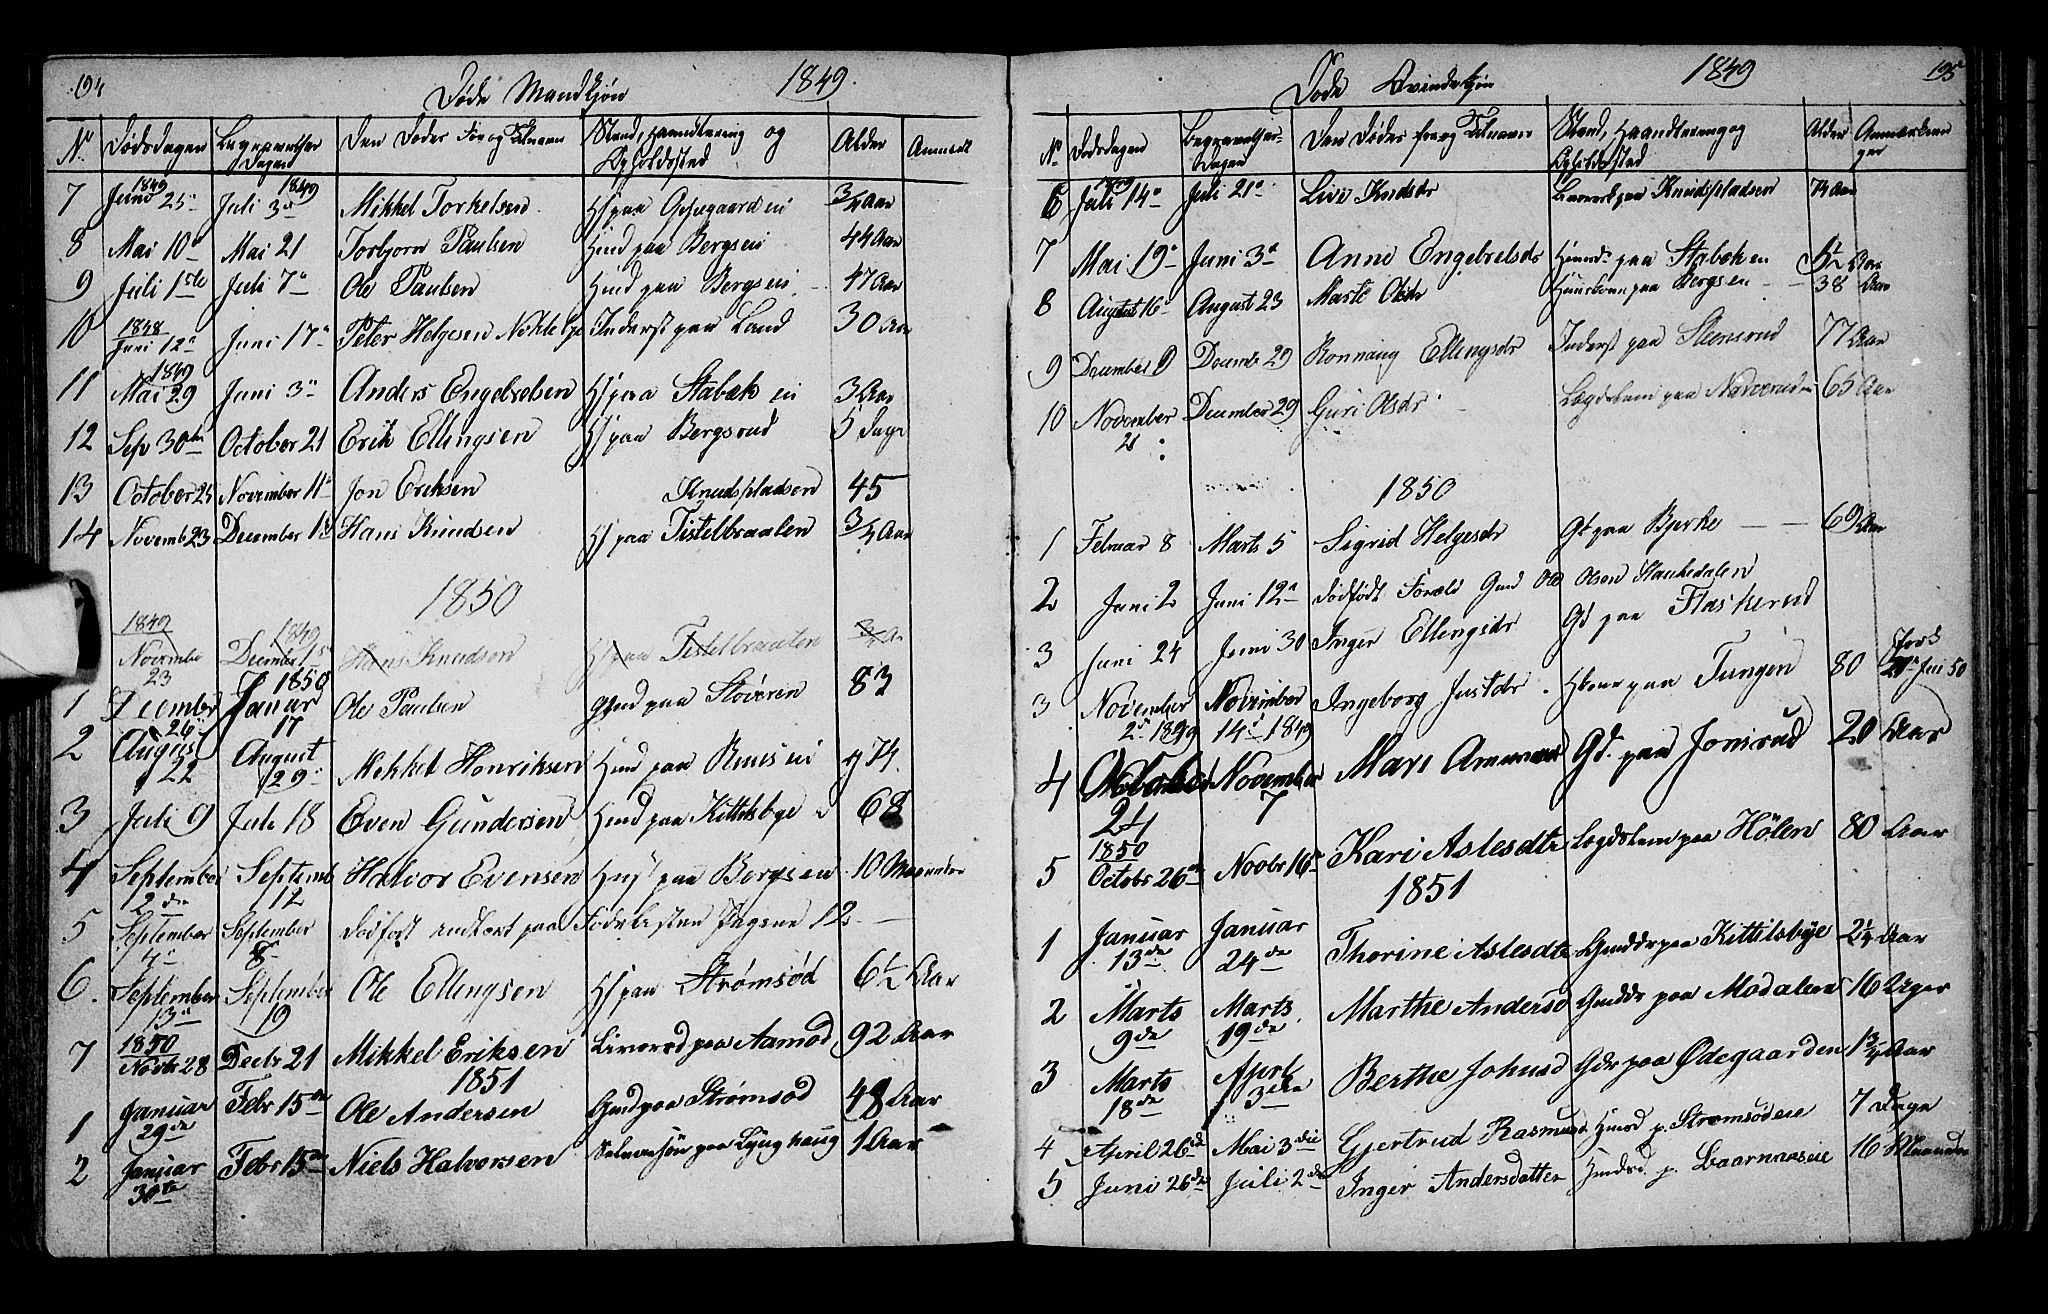 194
Døde Mandkjøn 1849.
No Dødsdagen Begravelses Dagen Den Dødes For og Tilnavn Stand, Haandtering og Opholdssted Alder Anmerk
7 1849 Juni 25 Juli 3 1849 Mikkel Torkelsen Hs paa Oppegaard ei 3/4 Aar
8 Mai 10 Mai 21 Torbjørn Paulsen Hmd paa Bergsei 44 Aar
9 Juli 1ste Juli 7 Ole Paulsen Hmd paa Bergsei 47 Aar
10 1848 Juni 12 Juni 17 Peter Helgesen Inderst paa Land 30 Aar
11 1849 Mai 29 Juni 3 Anders Engebretsen Hs paa Stabæk ei 3 Aar
12 Sep 30te October 21 Erik Ellingsen Hs paa Bergsrud 5 Dage
13 October 25 November 11 Jon Eriksen Knudspladsen 45
14 Novemb 23 December Hans Knudsen Hs paa Tistelbraaten 3/4 Aar
1850
1849 Novembe 23 1849 December Hans Knudsen Hs paa Tistelbraaten
1 December 26 1850 Januar 17 Ole Paulsen Gmd paa Støveren 83
2 August 22 August 29 Mekkel Henriksen Hmd paa 74
3 Juli 9 Juli 18 Even Gundersen Hmd paa Kittilsbye 68
4 September 12 den Septemb 112 Halvor Evensen Hus paa Bergsen 10 Maaneder
5 September 4 September 8 Dødfødt indført paa Fødelisten Pagina 12
6. September 13 September 19 Ole Ellingsen Hs paa Strømsød 6½ Aar
7 1850 Novbr 28 Decbr 21 Mikkel Eriksen paa Aamod 92 Aar
1851
1 Januar 29de Febr 15de Ole Andersen Gmd paa Strømsod 48 Aar
2 Januar 30te Febr 15de Niels Halvorsen paa Lyng haug 1 Aar
195
Døde Qvindekjøn 1849
No Dødsdagen Begravelses-Dagen Den Dødes for og Tilnavn Stand, Haandtering og Opholdssted Alder Anmærkninger
6 Juli 14 Juli 21 Live Kndsdr paa Knudspladsen Aar
7 Mai 19 Juni 3 Anne Engebretsdr paa Stabæk en Aar
8 August 16 August 23 Marte Olsdr Huuskone paa Bergsen 38 Aar
9 December 9 Decembr 29 Ronnaug Ellingsdr Inderst paa Steensrud 77 Aar
10 November 21 December 29 Guri Olsdr Lægdslem paa 65 Aar
1850
1 Februar 8 Marts 5 Sigrid Helgesdr Gk paa Bjerke 69 Aar
2 Juni 2 Juni 12 Dødfødt Foræld Gmd Ole Olsen
3 Juni 24 Juni 30 Inger Ellingsdr Gd paa Flaskerud
3 November 2 1849 November 14 1849 Ingeborg Justdr Hkone paa Tungen 80
4 Octobber 24 November 7 Mari Gd. paa Jonsrud 20 Aar
5 1850 Octobr 26 Novbr 16 Kari Aslesdtr Lægdslem paa Hølen 80 Aar
1851
1 Januar 13de Januar 24de Thorine Aslesdtr Gmddr paa Kittilsbye 2¼ Aar
2 Marts 9de Marts 19de Marthe Andersd Gmddr paa Modalen 16 Uger
3 Marts 18de Aprl 3die Berthe Johnsd Gdr paa Ødegaarden 1¾ Aar
4 April 26de Mai 3die Gjertrud Rasmusd Hmsd p. Strømsødeie 7 Dage
5 Juni 26de Juli 2de Inger Andersdatter Hmdsd p. Baarnæseie 16 Maaneder